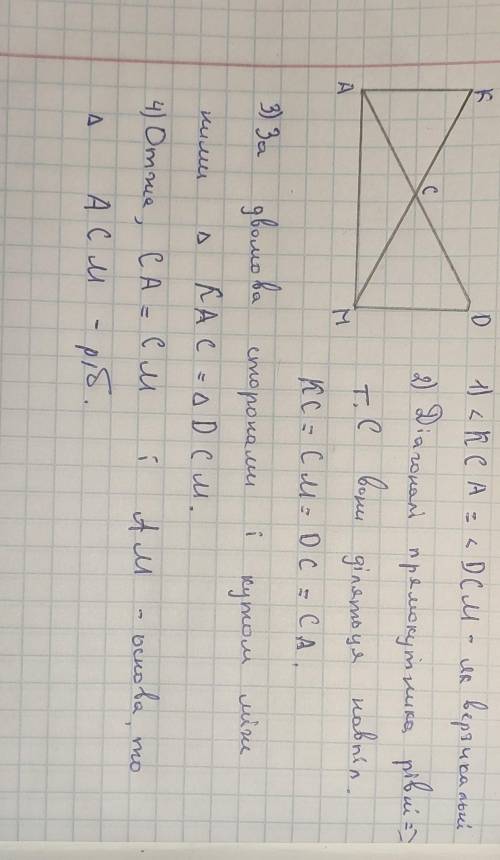 K
D
C
A
M
1) < KCA = < DCM - як вертикальні
2) Діагоналі прямокутника рівні =>
т. C вони діляться навпіл.
KC = CM = DC = CA.
3) За двомова сторонами і кутом між
ними △ KAC = △ DCM.
4) Отже, CA = CM і AM - основа, то
△ ACM - р/б.